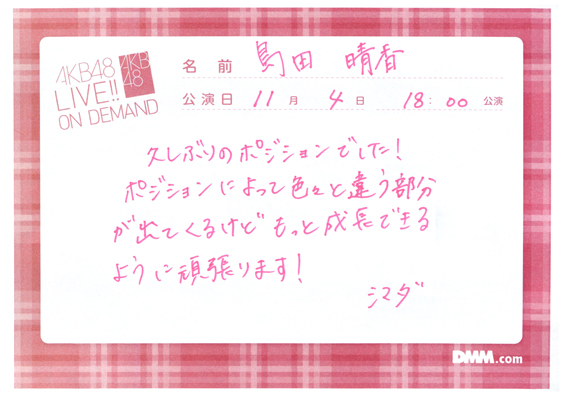 AKB48
LIVE!!
ON DEMAND
AKB
48
名前 島田 晴香
公演日 11月 4日 18:00 公演
久しぶりのポジションでした!
ポジションによって色々と違う部分
が出てくるけど もっと成長できる
ように頑張ります!
シマダ
DMM.com